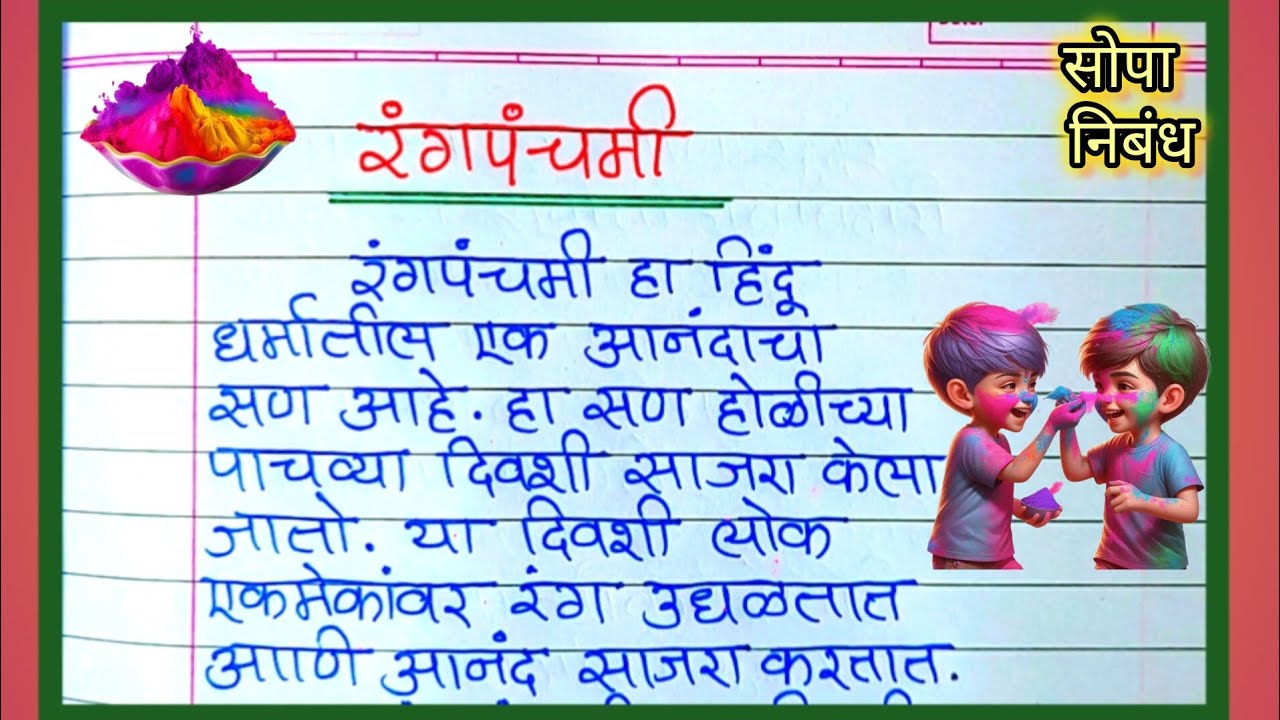 सोपा
निबंध
रंगपंचमी
रंगपंचमी हा हिंदू
धर्मातील एक आनंदाचा
सण आहे. हा सण होळीच्या
पाचव्या दिवशी साजरा केला
जातो. या दिवशी लोक
एकमेकांवर रंग उधळतात
आणि आनंद साजरा करतात.